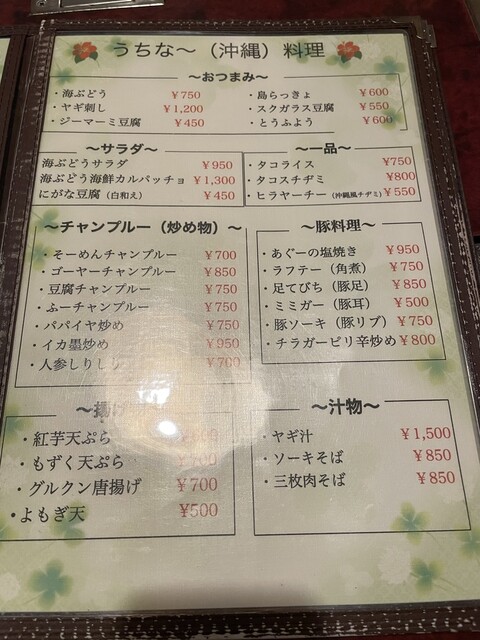 うちな〜（沖縄）料理
〜おつまみ〜
・海ぶどう ¥750
・ヤギ刺し ¥1,200
・ジーマーミ豆腐 ¥450
・島らっきょ ¥600
・スクガラス豆腐 ¥550
・とうふよう ¥600
〜サラダ〜
海ぶどうサラダ ¥950
海ぶどう海鮮カルパッチョ ¥1,300
にがな豆腐（白和え） ¥450
〜一品〜
・タコライス ¥750
・タコスチヂミ ¥800
・ヒラヤーチー（沖縄風チヂミ） ¥550
〜チャンプルー（炒め物）〜
・そーめんチャンプルー ¥700
・ゴーヤーチャンプルー ¥850
・豆腐チャンプルー ¥750
・ふーチャンプルー ¥750
・パパイヤ炒め ¥750
・イカ墨炒め ¥950
・人参しりしり ¥700
〜豚料理〜
・あぐーの塩焼き ¥950
・ラフテー（角煮） ¥750
・足てびち（豚足） ¥850
・ミミガー（豚耳） ¥500
・豚ソーキ（豚リブ） ¥750
・チラガーピリ辛炒め ¥800
〜揚げ
・紅芋天ぷら
・もずく天ぷら
・グルクン唐揚げ ¥700
・よもぎ天 ¥500
〜汁物〜
・ヤギ汁 ¥1,500
・ソーキそば ¥850
・三枚肉そば ¥850